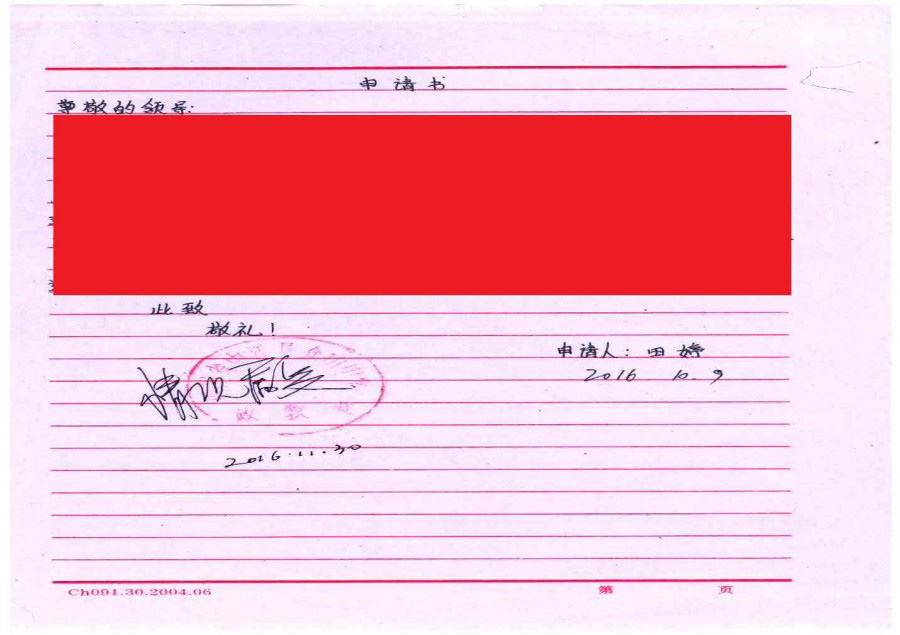 申请书
尊敬的领导:
此致
敬礼!
申请人: 田婷
2016 10.9
情况属实
政教处
2016.11.30
Ch091.30.2004.06
第 页